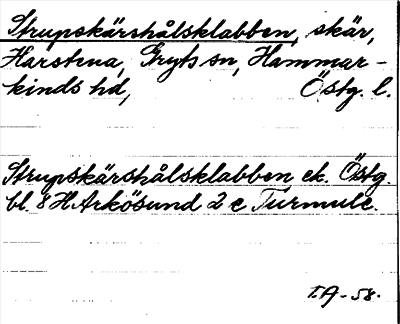 Strupskärshålsklabben, skär,
Harstena, Gryts sn, Hammar-
kinds hd, Östg. l.
Strupskärshålsklabben ek. Östg.
bl. 8 H. Arkösund 2 c Turmulc.
T.A-58.